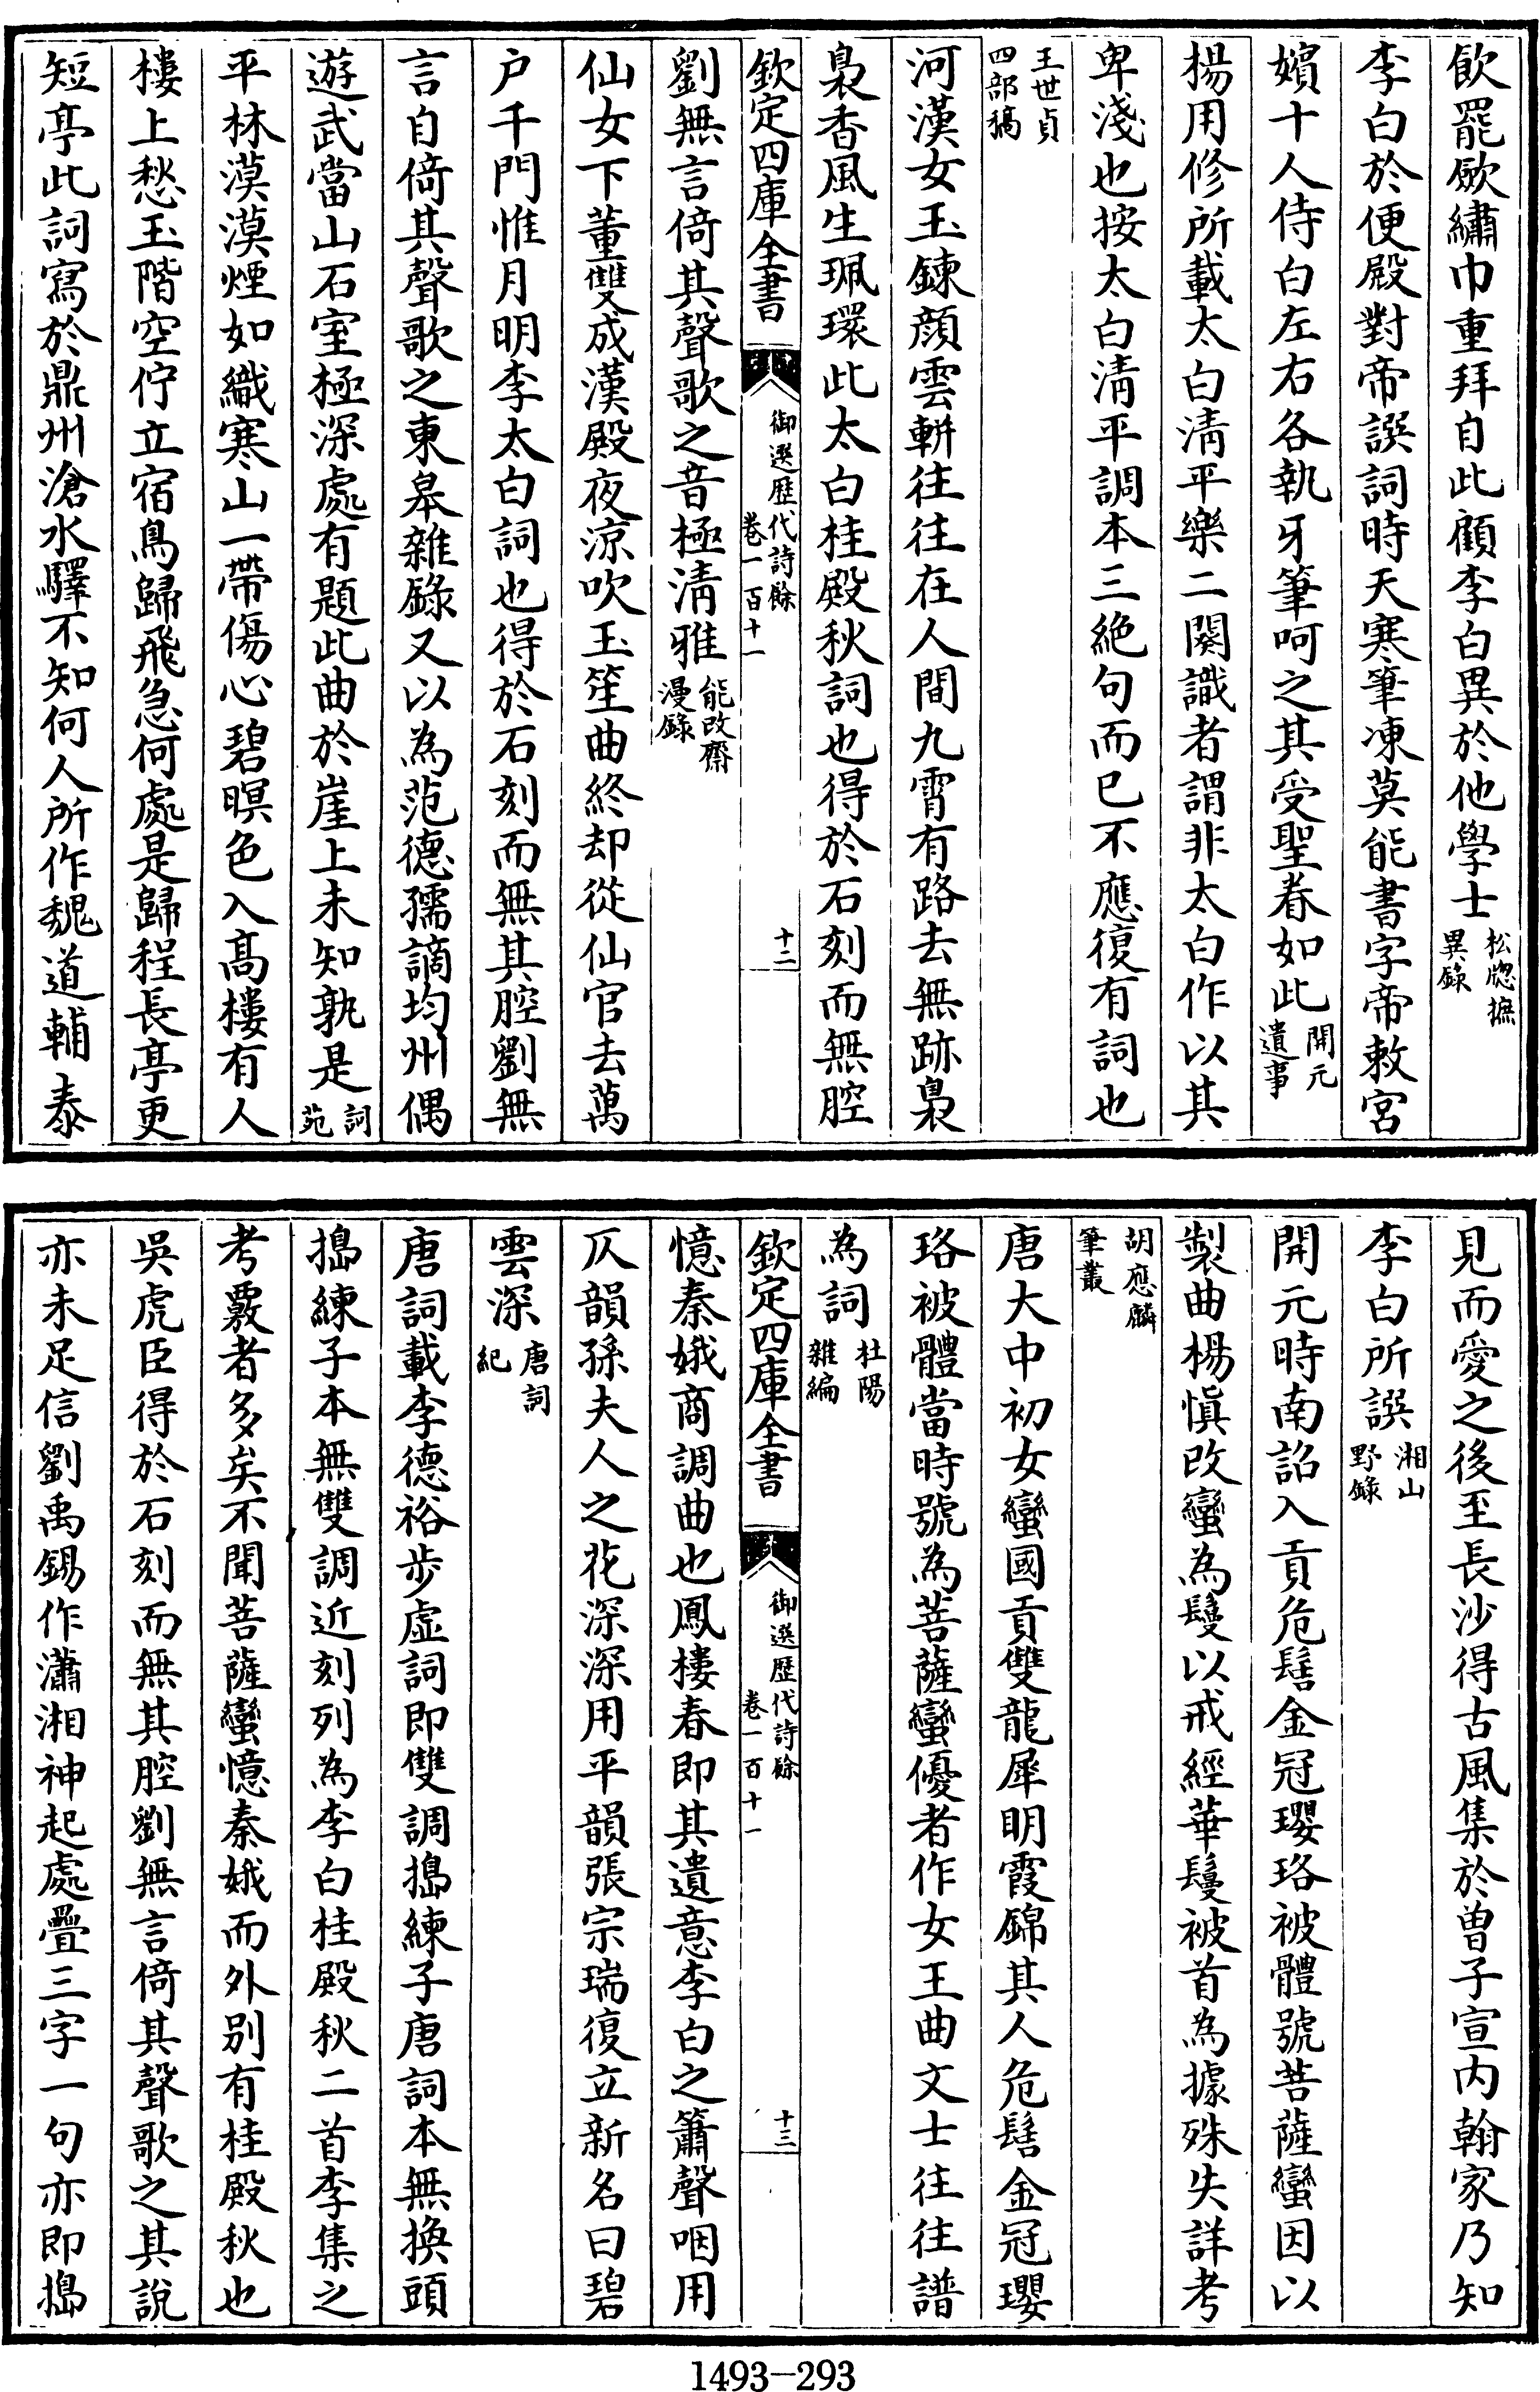 飲罷歛繡巾重拜自此顧李白異於他學士松牕摭異錄
李白於便殿對帝譔詞時天寒筆凍莫能書字帝敕宮
嬪十人侍白左右各執牙筆呵之其受聖眷如此開元遺事
楊用修所載太白清平樂二闋識者謂非太白作以其
卑淺也按太白清平調本三絶句而已不應復有詞也
王世貞四部稿
河漢女玉鍊顔雲軿往往在人間九霄有路去無跡裊
裊香風生珮環此太白桂殿秋詞也得於石刻而無腔
欽定四庫全書 御選歷代詩餘卷一百十一 十二
劉無言倚其聲歌之音極清雅能改齋漫錄
仙女下董雙成漢殿夜凉吹玉笙曲終却從仙官去萬
户千門惟月明李太白詞也得於石刻而無其腔劉無
言自倚其聲歌之東皋雜錄又以為范德孺謫均州偶
遊武當山石室極深處有題此曲於崖上未知孰是詞苑
平林漠漠煙如織寒山一帶傷心碧暝色入髙樓有人
樓上愁玉階空佇立宿鳥歸飛急何處是歸程長亭更
短亭此詞寫於鼎州滄水驛不知何人所作魏道輔泰
見而愛之後至長沙得古風集於曾子宣内翰家乃知
李白所譔湘山野錄
開元時南詔入貢危髻金冠瓔珞被體號菩薩蠻因以
製曲楊慎改蠻為鬘以戒經華鬘被首為據殊失詳考
胡應麟筆叢
唐大中初女蠻國貢雙龍犀明霞錦其人危髻金冠瓔
珞被體當時號為菩薩蠻優者作女王曲文士往往譜
為詞杜陽雜編
欽定四庫全書 御選歷代詩餘卷一百十一 十三
憶秦娥商調曲也鳳樓春即其遺意李白之簫聲咽用
仄韻孫夫人之花深深用平韻張宗瑞復立新名曰碧
雲深唐詞紀
唐詞載李德裕步虛詞即雙調搗練子唐詞本無換頭
搗練子本無雙調近刻列為李白桂殿秋二首李集之
考覈者多矣不聞菩薩蠻憶秦娥而外別有桂殿秋也
吳虎臣得於石刻而無其腔劉無言倚其聲歌之其說
亦未足信劉禹錫作瀟湘神起處疊三字一句亦即搗
1493-293